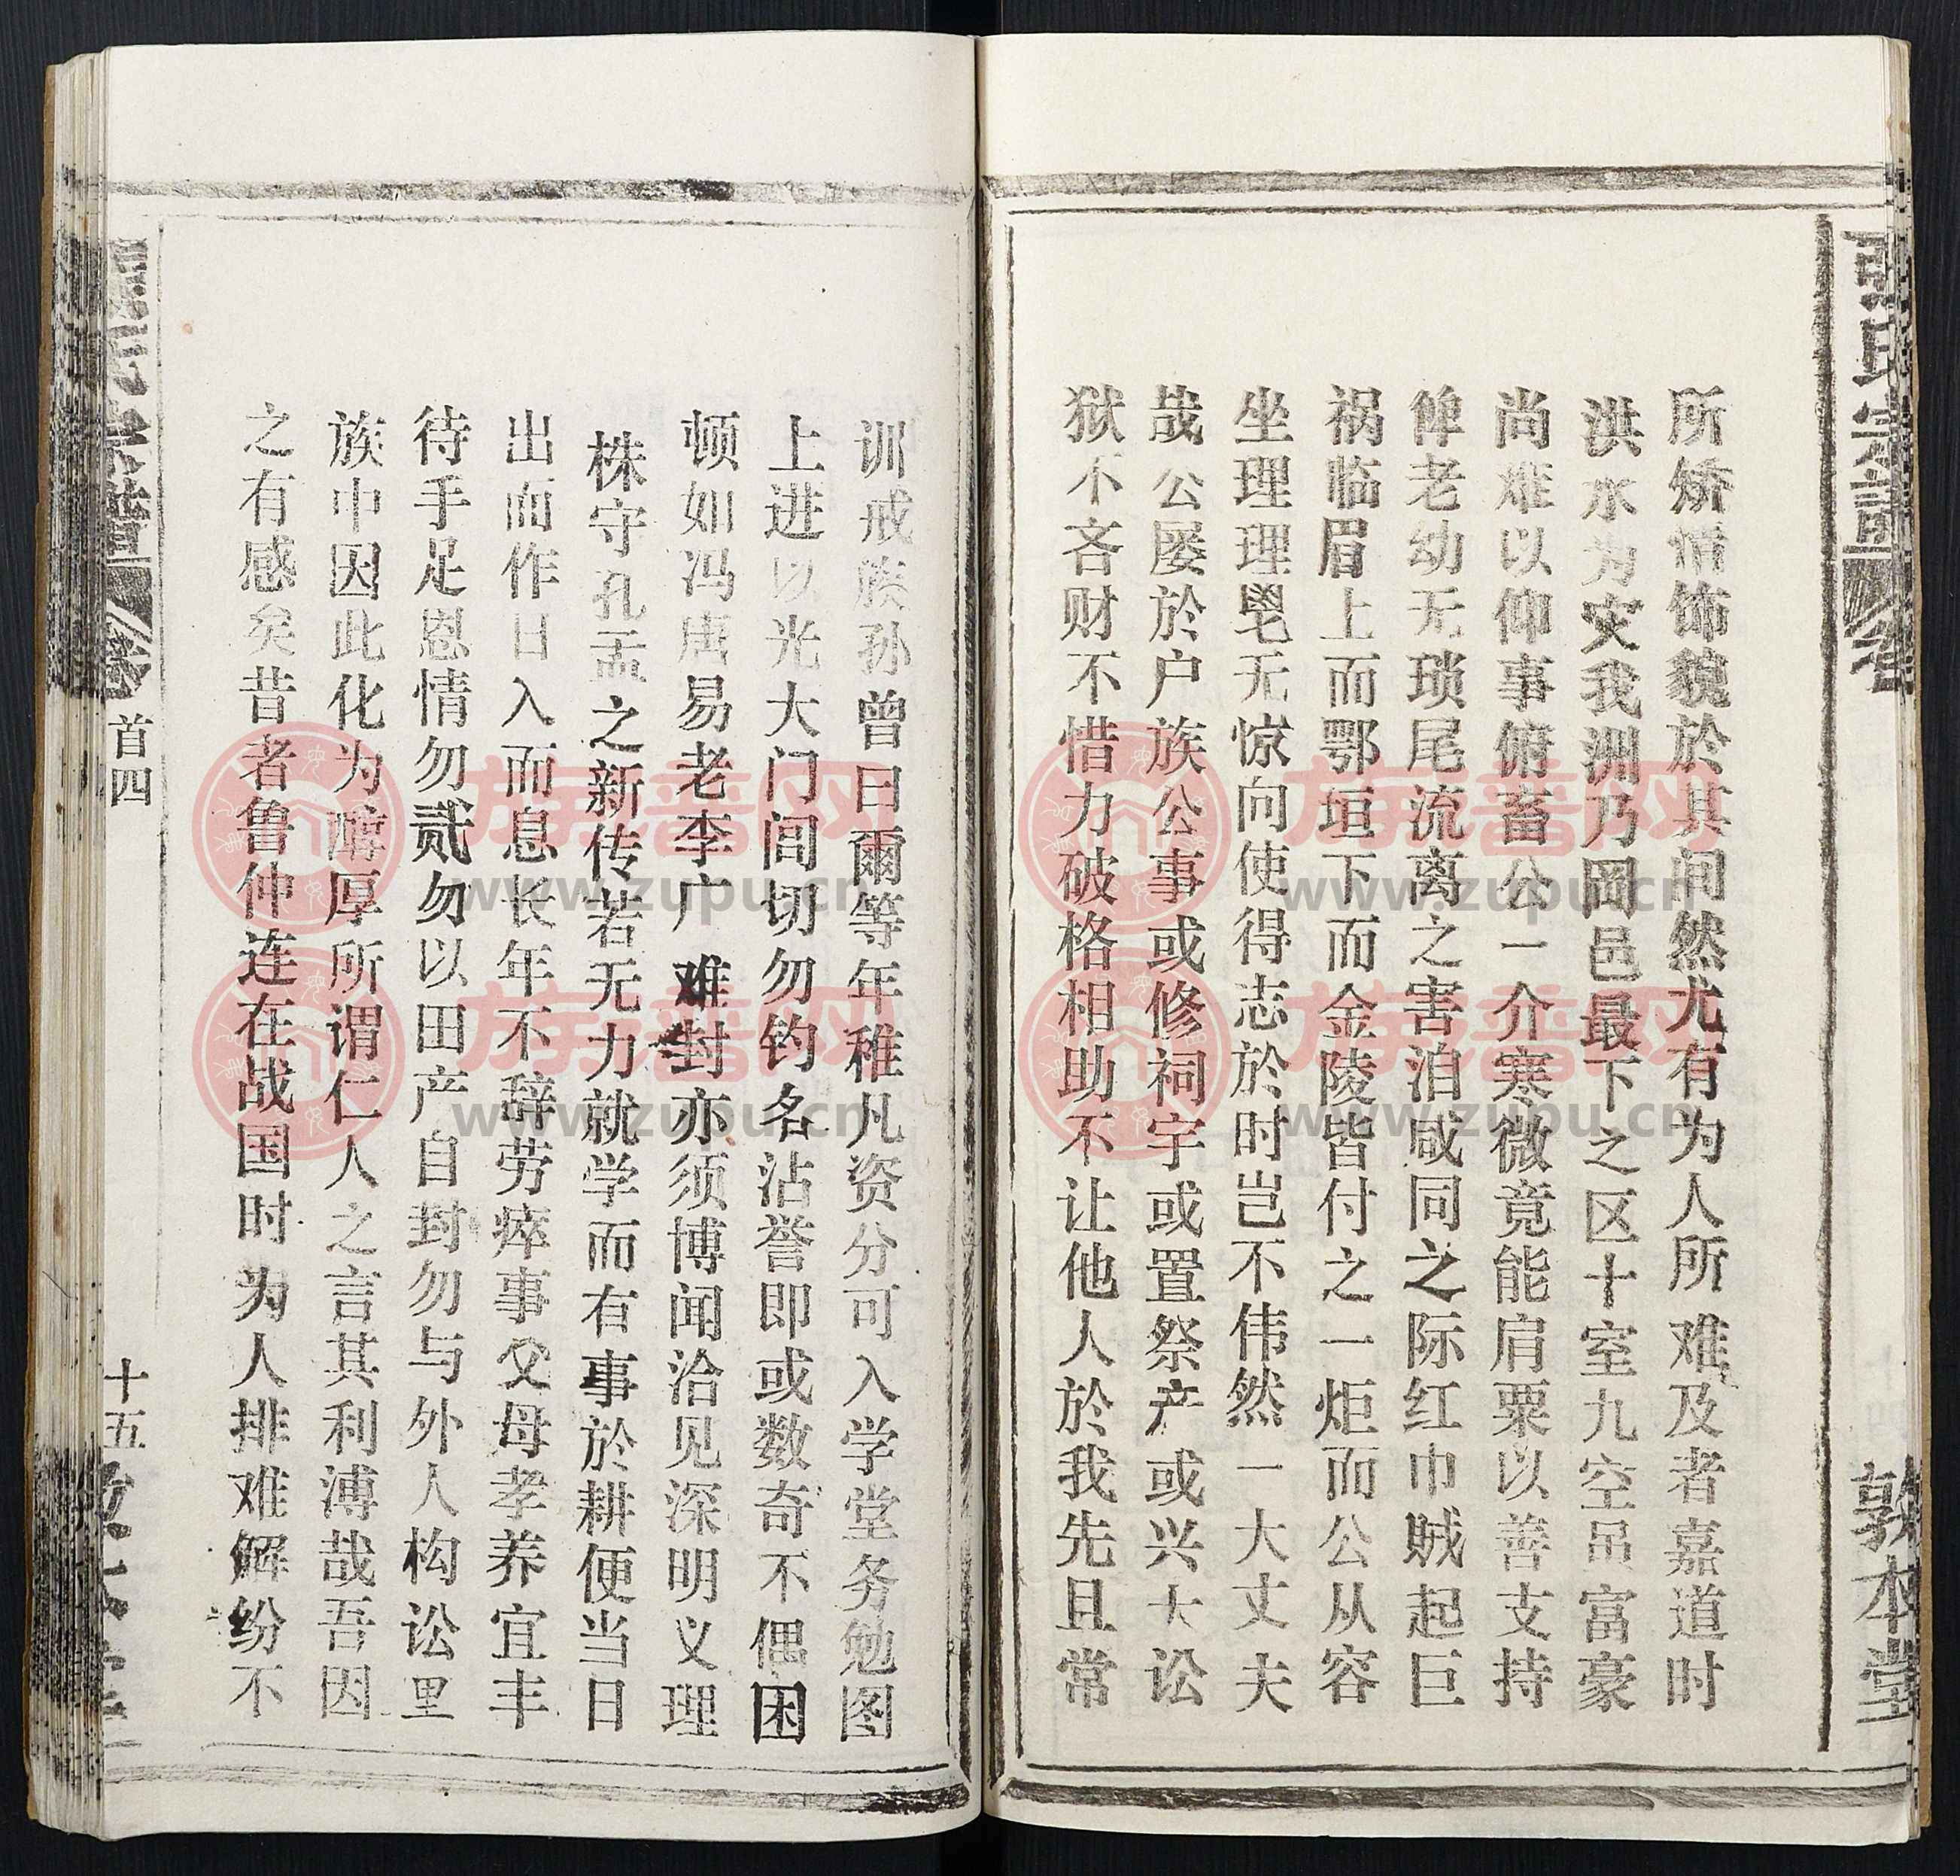 宗譜
卷
敦本堂
所矫情饰貌於其间然尤有为人所难及者嘉道时
洪水为灾我洲乃罔邑最下之区十室九空吊富豪
尚难以仰事俯畜公一介寒微竟能肩粟以善支持
俾老幼无琐尾流离之害洎咸同之际红巾贼起巨
祸临眉上而鄂垣下而金陵皆付之一炬而公从容
坐理理鬯无惊向使得志於时岂不伟然一大丈夫
哉公屡於户族公事或修祠宇或置祭产或兴大讼
狱不吝财不惜力破格相助不让他人於我先且常
训戒族孙曾曰爾等年稚凡资分可入学堂务勉图
上进以光大门闾切勿钓名沽誉即或数奇不偶困
顿如冯唐易老李广难封亦须博闻洽见深明义理
株守孔孟之新传若无力就学而有事於耕便当日
出而作日入而息长年不辞劳瘁事父母孝养宜丰
待手足恩情勿贰勿以田产自封勿与外人构讼里
族中因此化为醇厚所谓仁人之言其利溥哉吾因
之有感矣昔者鲁仲连在战国时为人排难解纷不
首四
十五
族谱网
www.zupu.cn
族谱网
www.zupu.cn
族谱网
www.zupu.cn
族谱网
www.zupu.cn